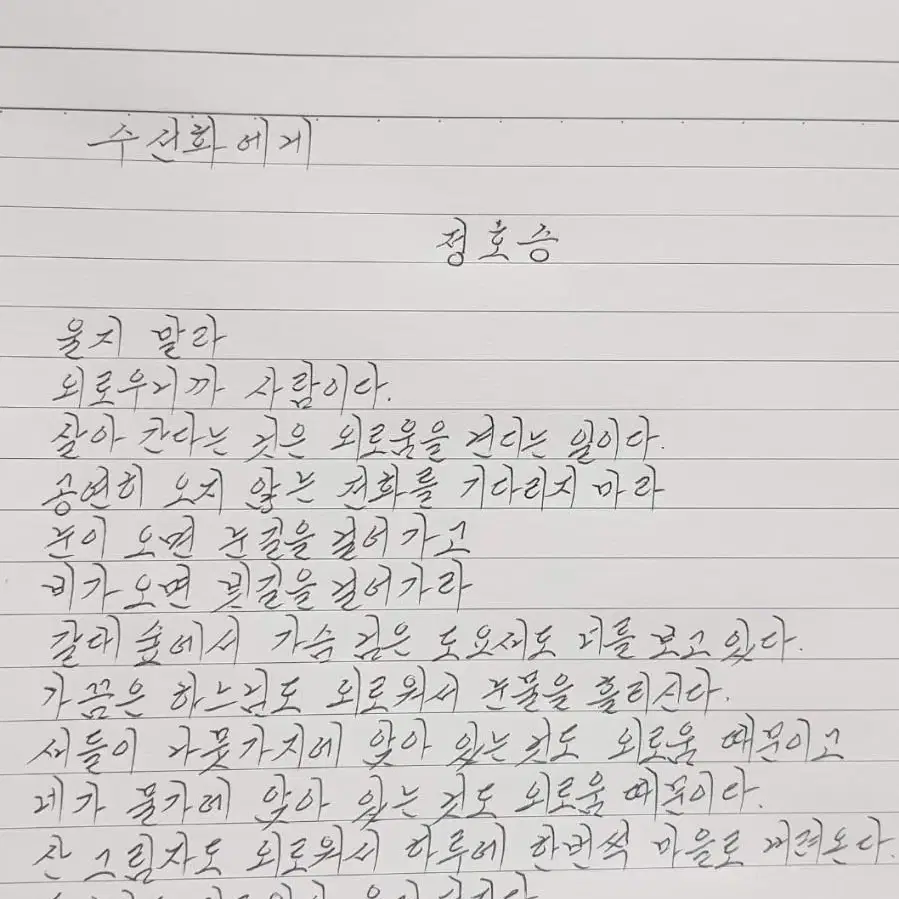 수선화에게
정호승
울지 말라
외로우니까 사람이다.
살아 간다는 것은 외로움을 견디는 일이다.
공연히 오지 않는 전화를 기다리지 마라
눈이 오면 눈길을 걸어가고
비가 오면 빗길을 걸어가라
갈대 숲에서 가슴 검은 도요새도 너를 보고 있다.
가끔은 하느님도 외로워서 눈물을 흘리신다.
새들이 나뭇가지에 앉아 있는 것도 외로움 때문이고
네가 물가에 앉아 있는 것도 외로움 때문이다.
산 그림자도 외로워서 하루에 한번씩 마을로 내려온다.